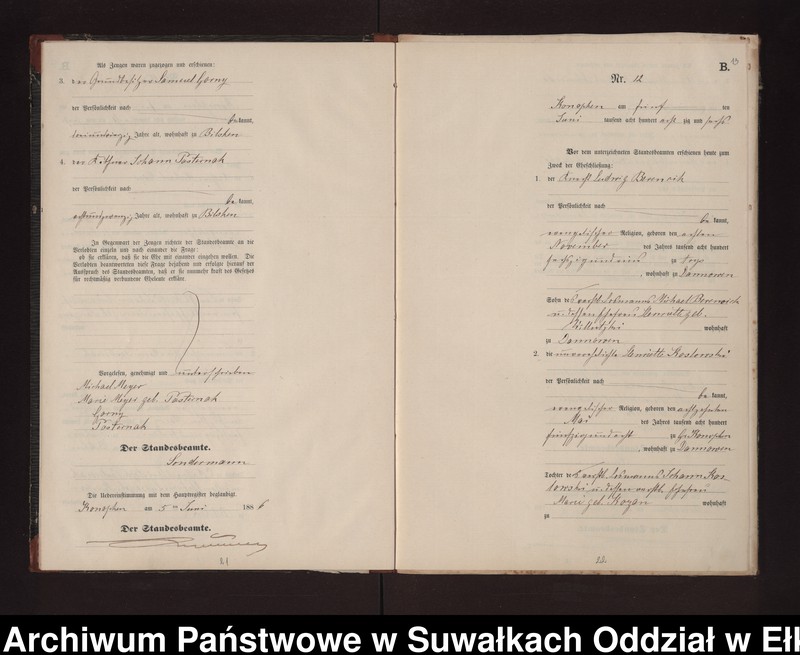 Als Zeugen waren zugezogen und erschienen:
3. der Grundbesitzer Samuel Gorny
der Persönlichkeit nach
be kannt,
Jahre alt, wohnhaft zu Bilsken
4. der Käthner Johann Pasturnak
der Persönlichkeit nach
be kannt,
achtundzwanzig Jahre alt, wohnhaft zu Bilsken
In Gegenwart der Zeugen richtete der Standesbeamte an die
Verlobten einzeln und nach einander die Frage:
ob sie erklären, daß sie die Ehe mit einander eingehen wollen. Die
Verlobten beantworteten diese Frage bejahend und erfolgte hierauf der
Ausspruch des Standesbeamten, daß er sie nunmehr kraft des Gesetzes
für rechtmäßig verbundene Eheleute erkläre.
Vorgelesen, genehmigt und unterschrieben
Michael Meyer
Marie Meyer geb. Pasturnak
Gorny
Pasturnak
Der Standesbeamte.
Sondermann
Die Uebereinstimmung mit dem Hauptregister beglaubigt
Konopken am 5ten Juni 1886
Der Standesbeamte.
B.
Nr. 12
Konopken am fünf ten
Juni tausend acht hundert acht zig und sechs
Vor dem unterzeichneten Standesbeamten erschienen heute zum
Zweck der Eheschließung:
1. der Knecht Ludwig
der Persönlichkeit nach
be kannt,
evangelischer Religion, geboren den achten
November des Jahres tausend acht hundert
sechszigundeins zu
, wohnhaft zu Dannowen
Sohn des Michael
und dessen Ehefrau Henriette geb.
wohnhaft
zu Dannowen
2. die unverehelichte Henriette Koslowski
der Persönlichkeit nach
be kannt,
evangelischer Religion, geboren den achtzehnten
Mai des Jahres tausend acht hundert
fünfzigundacht zu Gr. Konopken
, wohnhaft zu Dannowen
Tochter des verst. Losmanns Johann Kos-
lowski und dessen verst. Ehefrau
Marie geb. Kozan wohnhaft
zu
12.
Archiwum Państwowe w Suwałkach Oddział w Ełk